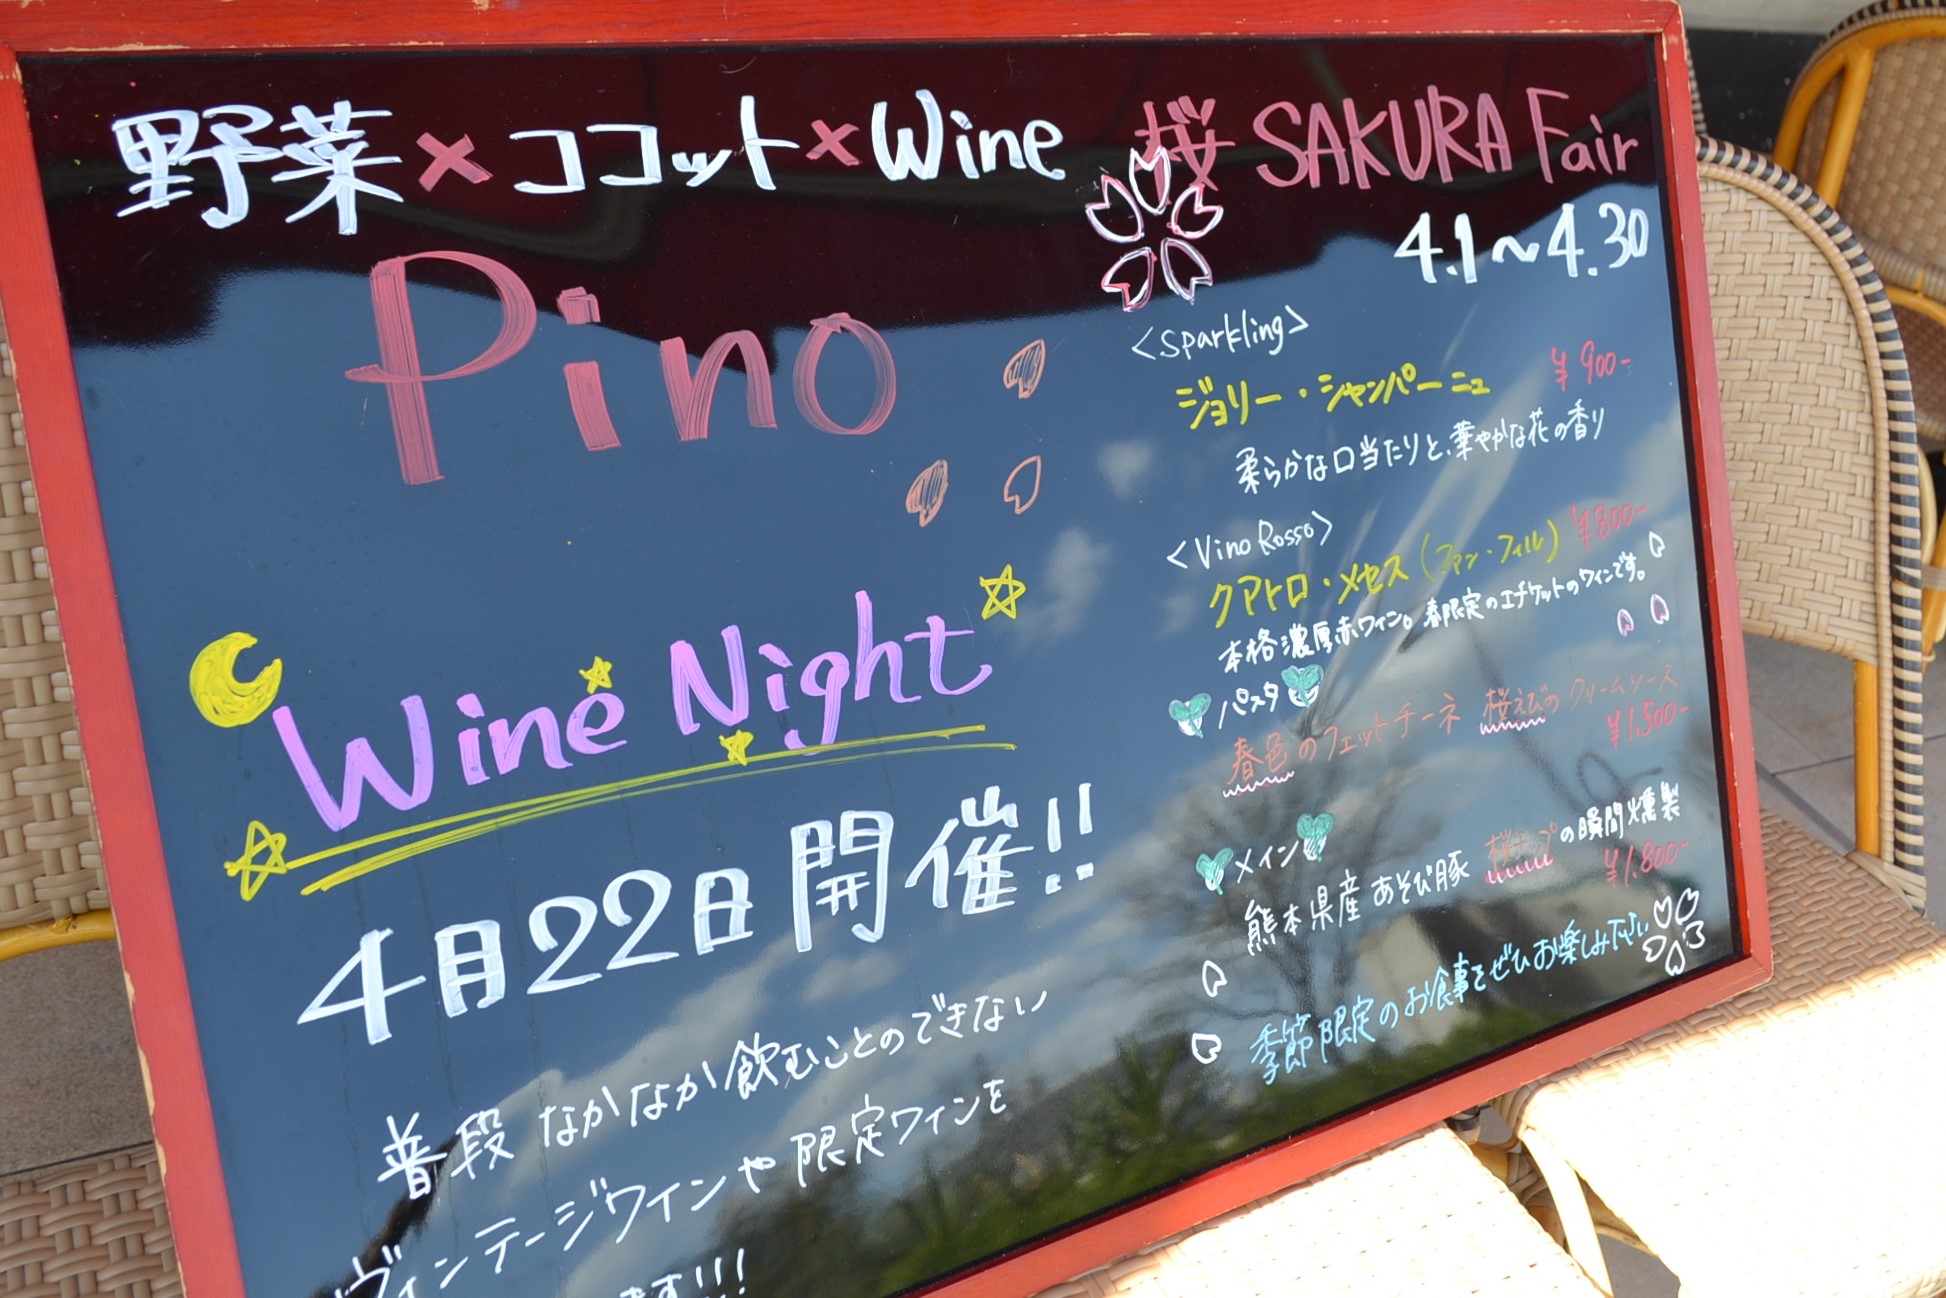 野菜×ココット×Wine
Pino
Wine Night
4月22日開催!!
普段 なかなか飲むことのできない
ヴィンテージワインや限定ワインを
ます!!!
桜 SAKURA Fair
4.1～4.30
<Sparkling>
ジョリー・シャンパーニュ ¥900-
柔らかな口当たりと、華やかな花の香り
<Vino Rosso>
クアトロ・メセス(ファン・フィル) ¥800-
本格濃厚赤ワイン。春限定のエチケットのワインです。
パスタ
春色のフェットチーネ 桜えびのクリームソース
¥1,500-
メイン
熊本県産 あそび豚 桜チップの瞬間燻製
¥1.800-
季節限定のお食事をぜひお楽しみ下さい